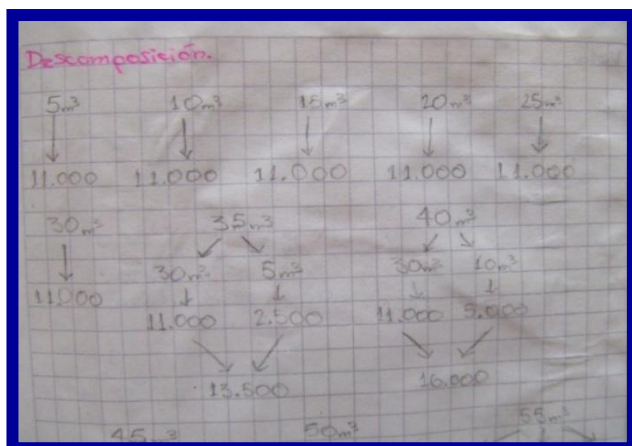 Descomposición.
5m³ 10m³ 15m³ 20m³ 25m³
11.000 11.000 11.000 11.000 11.000
30m³ 35m³ 40m³
30m³ 5m³ 30m³ 10m³
11.000
11.000 2.500 11.000 5.000
13.500 16.000
55m³
45m³ 50m³